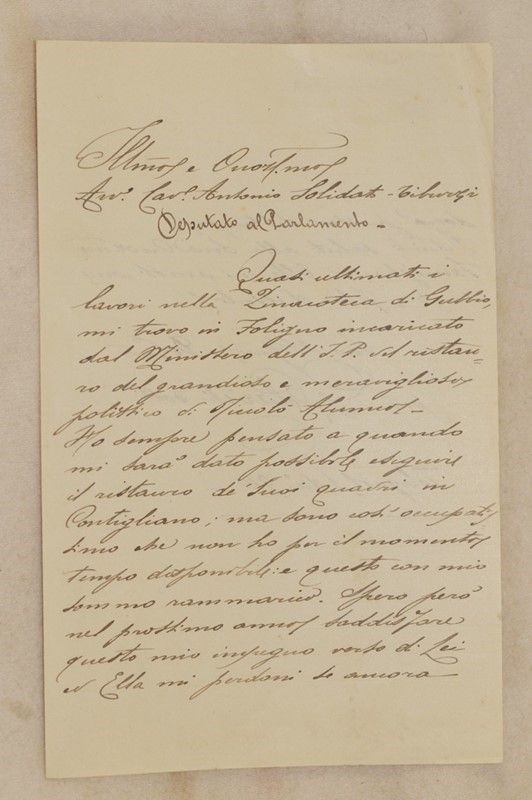 Illmo e Onor.mo
Avv. Cav. Antonio Solidati-Tiburzi
Deputato al Parlamento -
Quasi ultimati i
lavori nella Pinacoteca di Gubbio,
mi trovo in Foligno incaricato
dal Ministero dell'I. P. del ristau-
ro del grandioso e meraviglioso
polittico di Nicolò Alunno -
Ho sempre pensato a quando
mi sarà dato possibile eseguire
il ristauro de' Suoi quadri in
Contigliano; ma sono così occupatis
simo che non ho per il momento
tempo disponibile: e questo con mio
sommo rammarico. Spero però
nel prossimo anno soddisfare
questo mio impegno verso di Lei
ed Ella mi perdoni se ancora